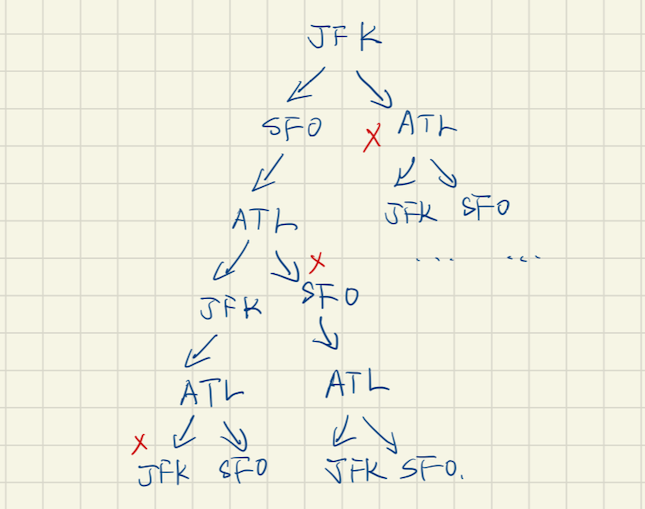 JFK
SFO X ATL
JFK SFO
ATL
... ...
X
JFK SFO
ATL ATL
X
JFK SFO JFK SFO.